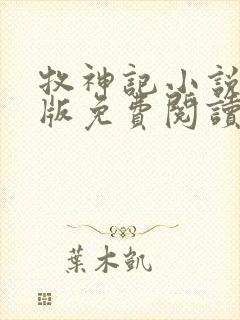 牧神記小說
版免費閱讀
葉木凱